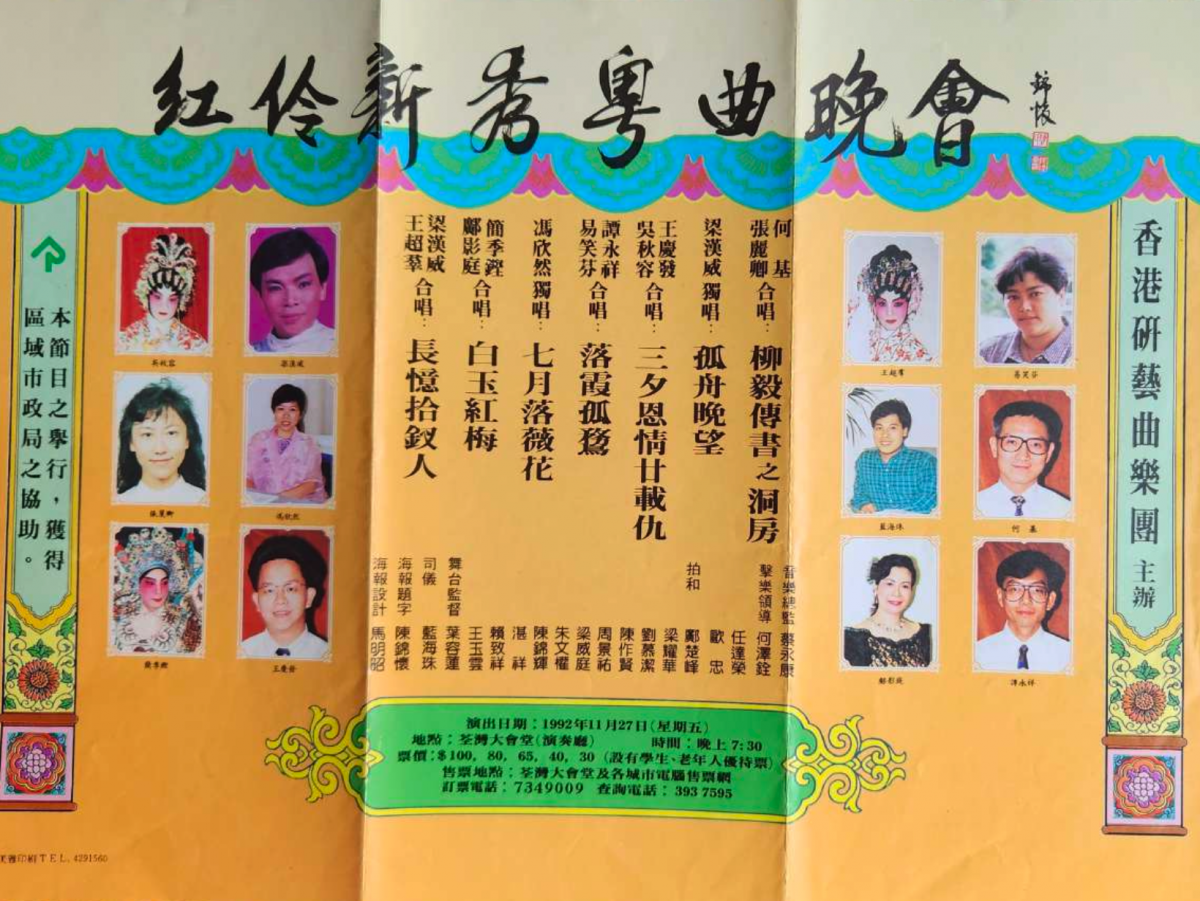 紅伶新秀粵曲晚會
錦懷
香港研藝曲樂團 主辦
何基
張麗卿 合唱：柳毅傳書之洞房
梁漢威 獨唱：孤舟晚望
王慶發
吳秋容 合唱：三夕恩情廿載仇
譚永祥
易笑芬 合唱：落霞孤鶩
馮欣然 獨唱：七月落薇花
簡季鏗
鄺影庭 合唱：白玉紅梅
梁漢威
王超羣 合唱：長憶拾釵人
音樂總監 蔡永康
擊樂領導 何澤銓
拍和
任達榮
歐忠
鄭楚峰
梁耀華
劉慕潔
陳作賢
周景祐
梁威庭
朱文懽
陳錦輝
湛祥
賴致祥
王玉雲
舞台監督 葉容蓮
司儀 藍海珠
海報題字 陳錦懷
海報設計 馬明昭
本節目之舉行，獲得
區域市政局之協助。
吳秋容
梁漢威
張麗卿
馮欣然
簡季鏗
王慶發
王超羣
易笑芬
藍海珠
何基
鄺影庭
譚永祥
演出日期：1992年11月27日(星期五)
地點：荃灣大會堂(演奏廳) 時間：晚上7:30
票價：$100, 80, 65, 40, 30 (設有學生、老年人優待票)
售票地點：荃灣大會堂及各城市電腦售票網
訂票電話：7349009 查詢電話：393 7595
印刷 TEL. 4291560